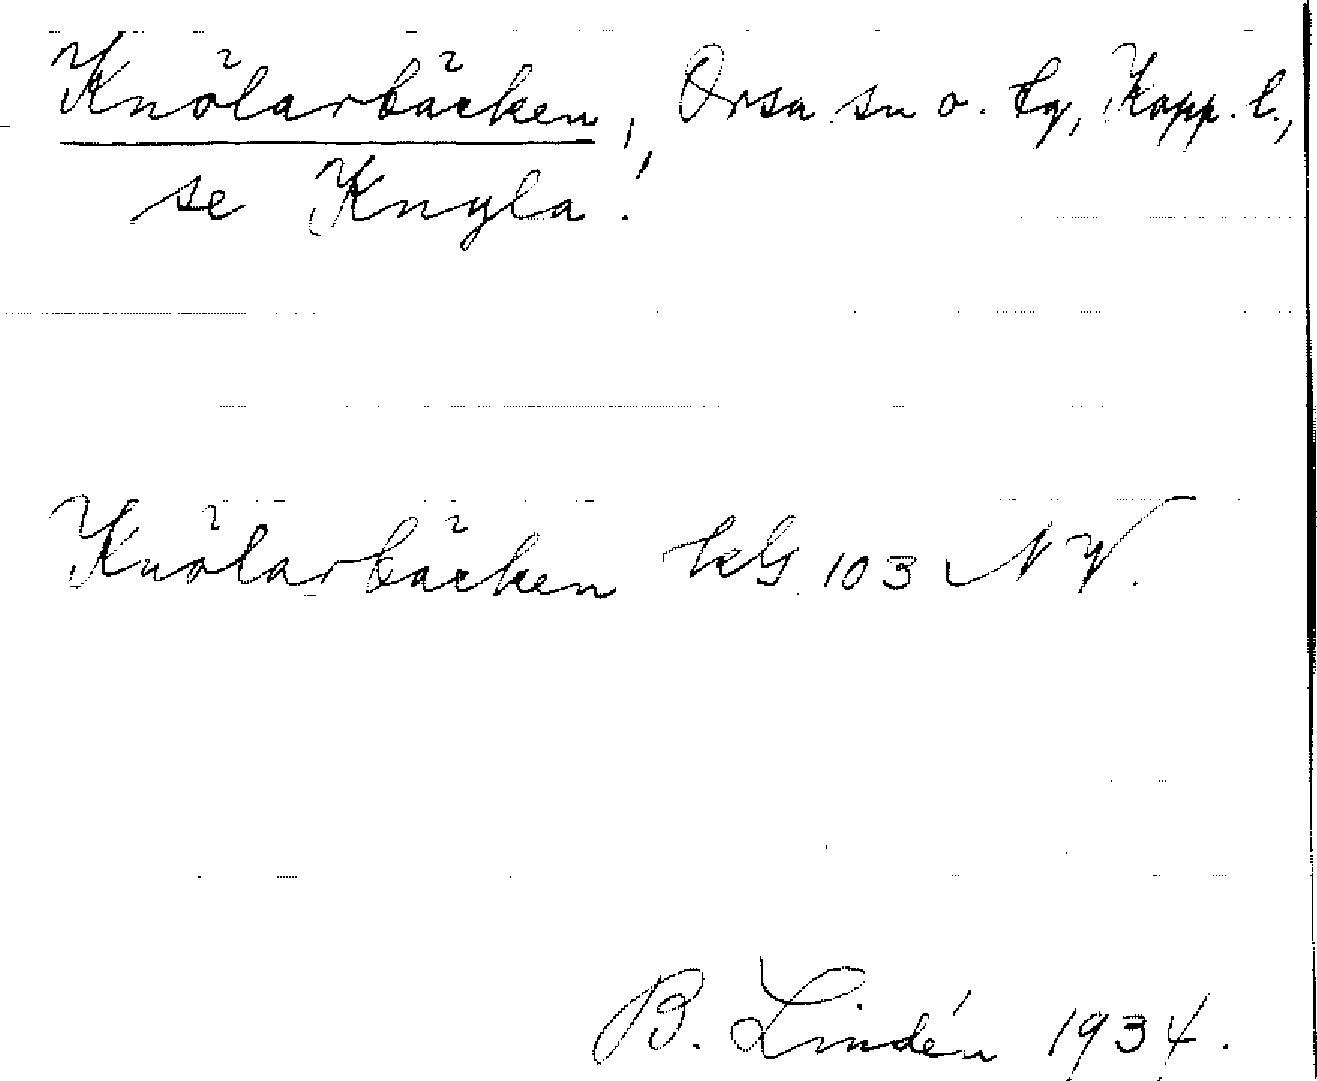 Knölarbäcken, Orsa sn o. tg, Kopp. l.,
se Knyla!
Knölarbäcken kbl 103 NV.
B. Lindén 1934.